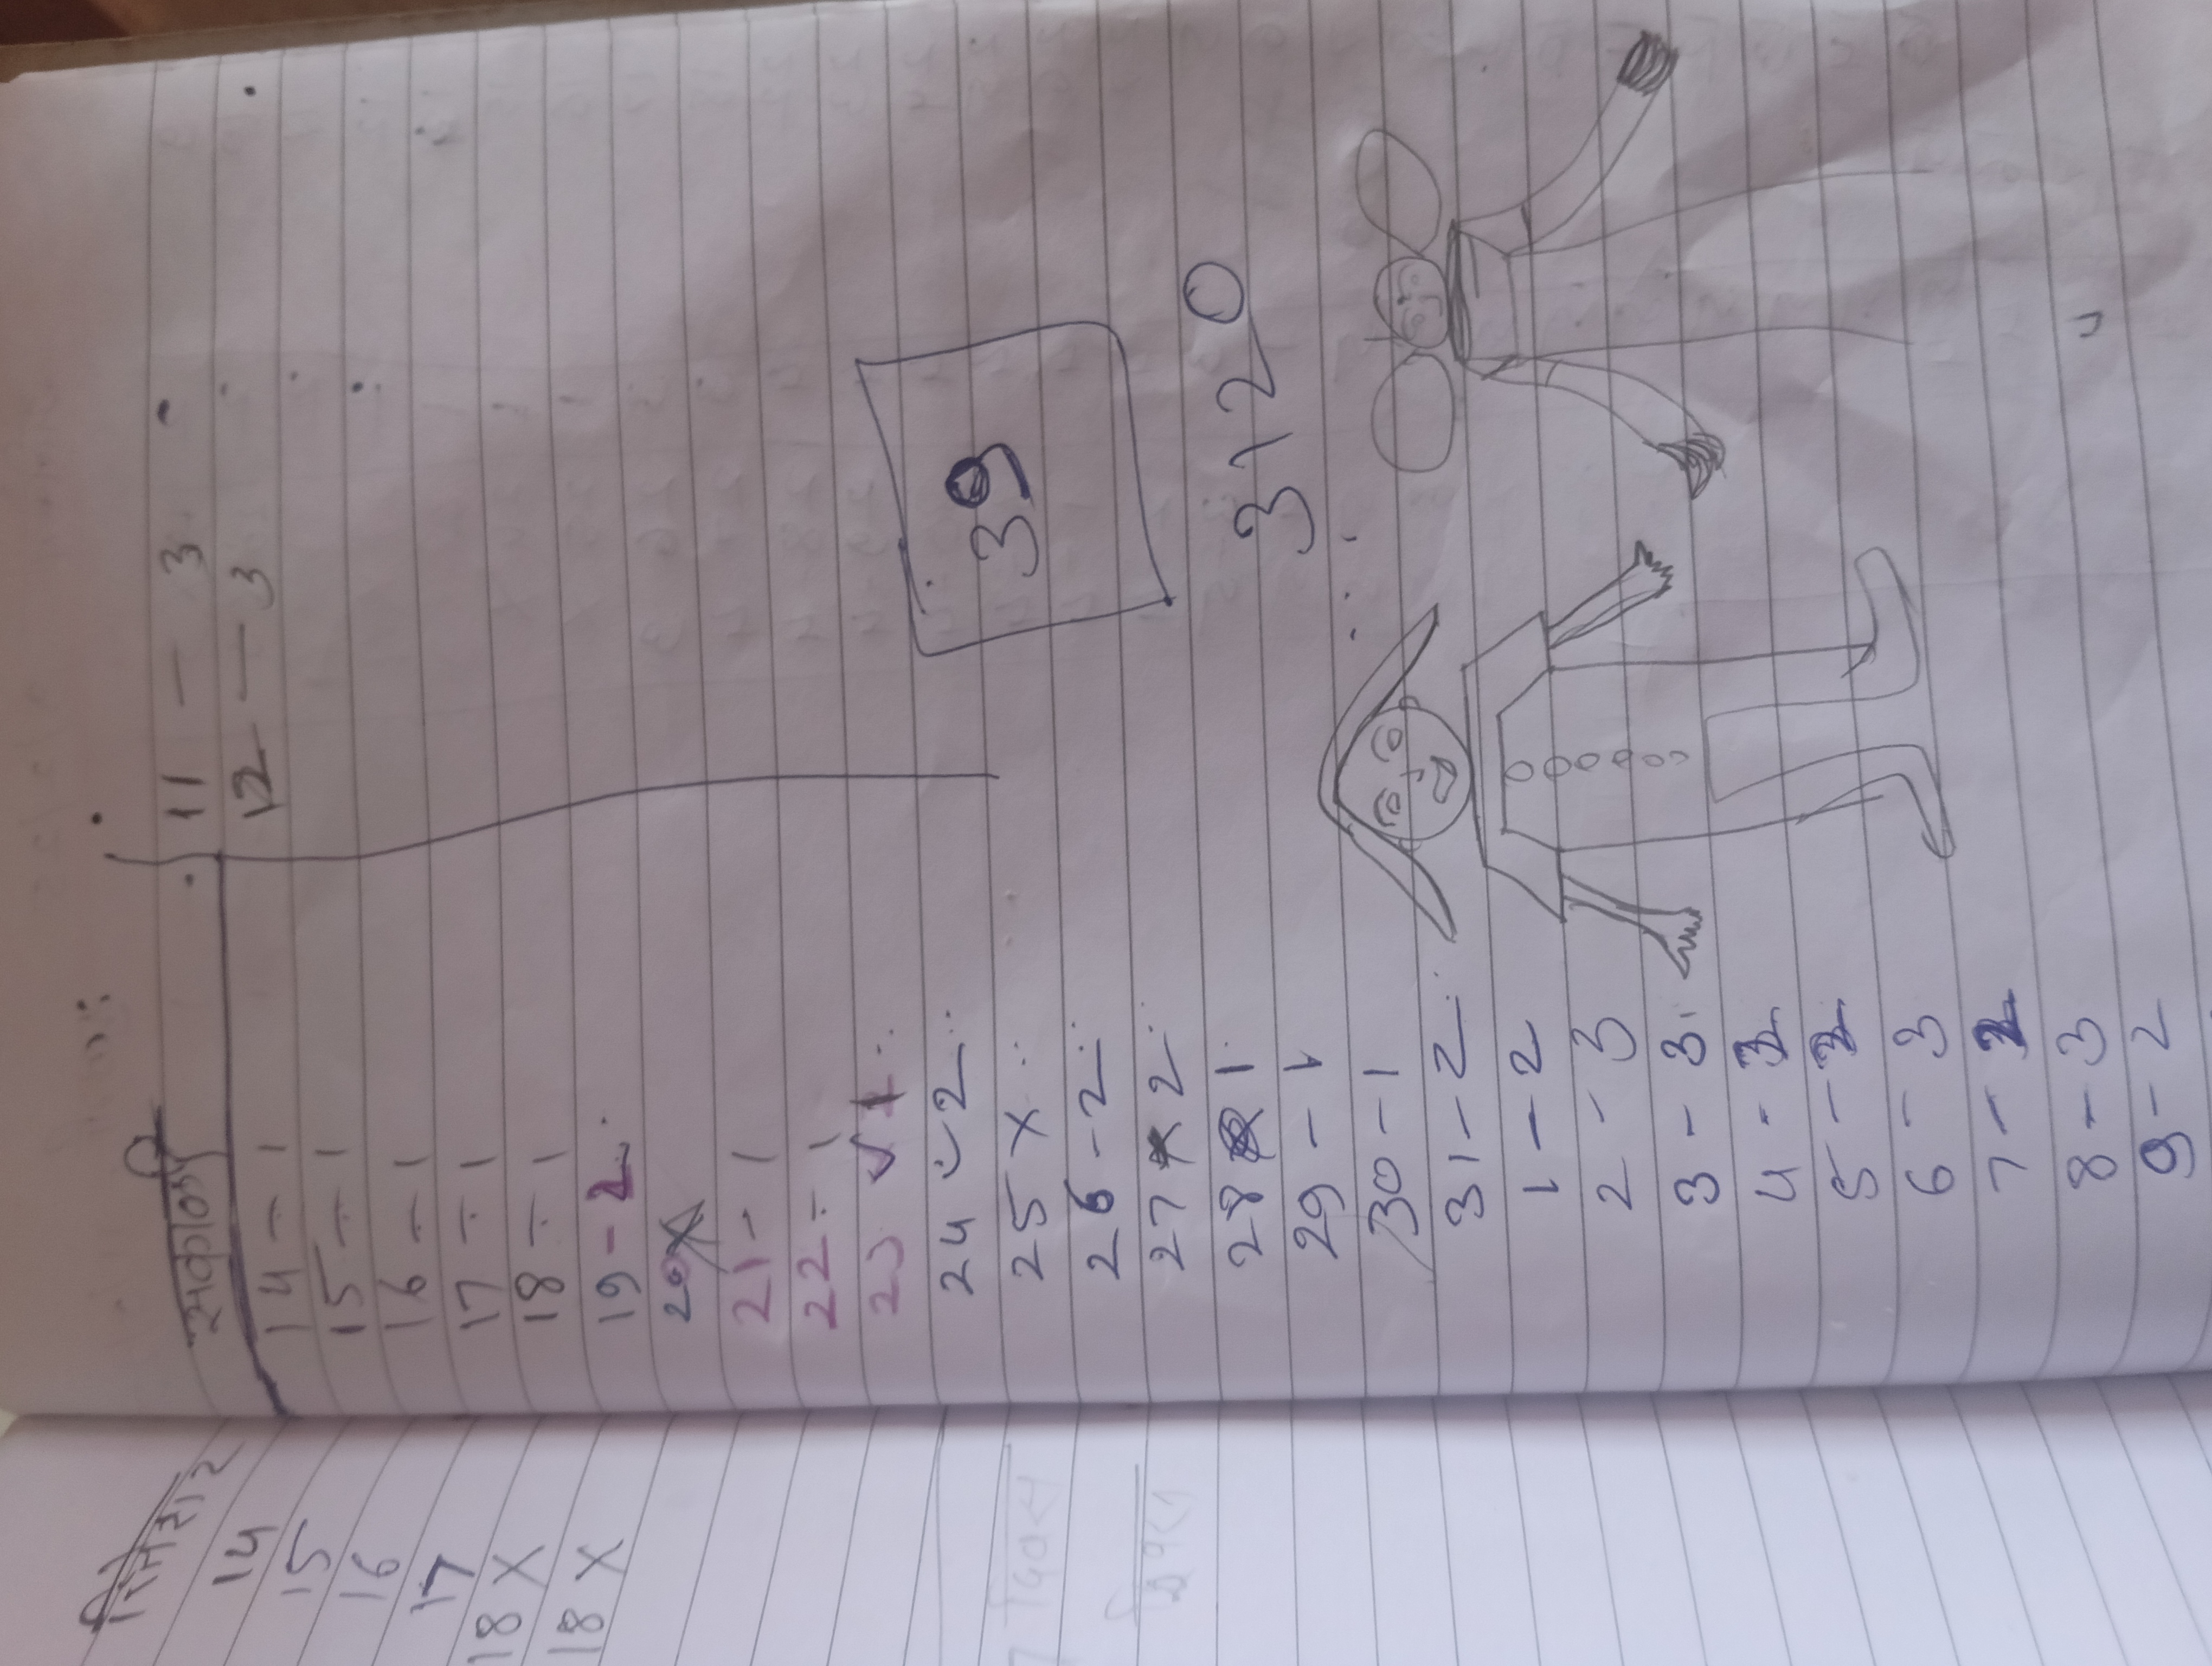 14
15
16
17
18 X
18 X
सकाळी
14 - 1
15 - 1
16 - 1
17 - 1
18 - 1
19 - 2
20 X
21 - 1
22 - 1
23 ✓ 1
24 - 2
25 X
26 - 2
27 2
28 1
29 - 1
30 - 1
31 - 2
1 - 2
2 - 3
3 - 3
4 -
5 -
6 - 3
7 - 2
8 - 3
9 - 2
11 - 3
12 - 3
39
3120